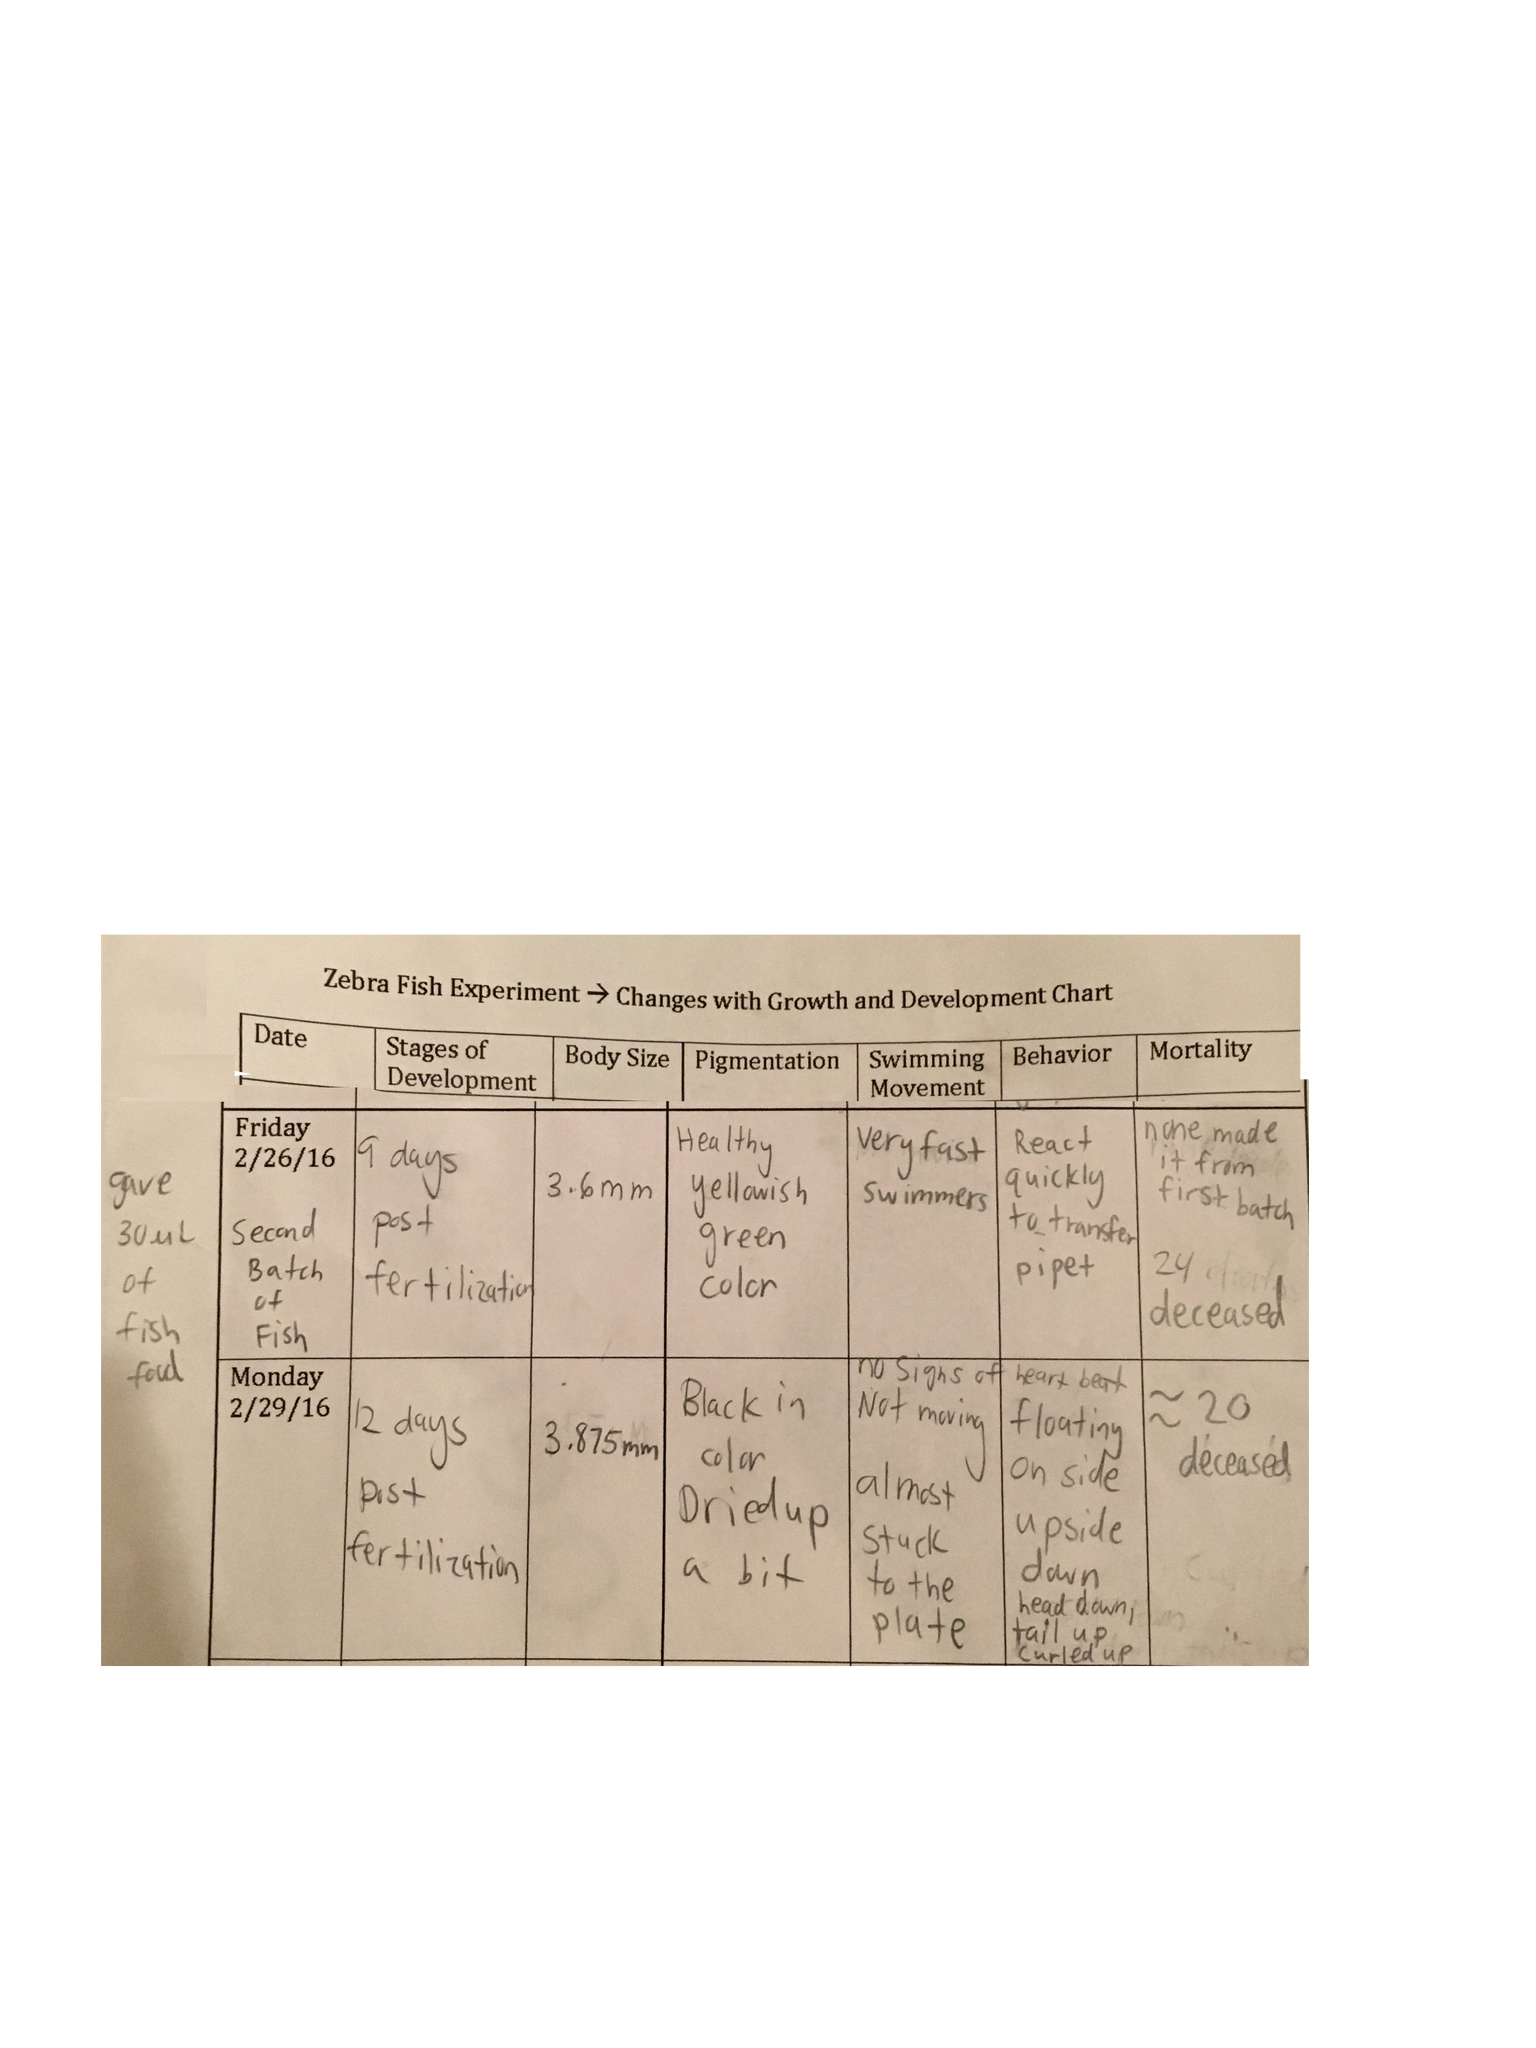 Zebra Fish Experiment → Changes with Growth and Development Chart
Date
Stages of
Development
Body Size
Pigmentation
Swimming
Movement
Behavior
Mortality
gave
30 μL
of
fish
food
Friday
2/26/16
Second
Batch
of
Fish
9 days
post
fertilization
3.6mm
Healthy
yellowish
green
color
Very fast
swimmers
React
quickly
to transfer
pipet
none made
it from
first batch
24
deceased
Monday
2/29/16
12 days
post
fertilization
3.875mm
Black in
color
Dried up
a bit
no signs of heart beat
Not moving
almost
stuck
to the
plate
floating
on side
upside
down
head down,
tail up
curled up
≈ 20
deceased